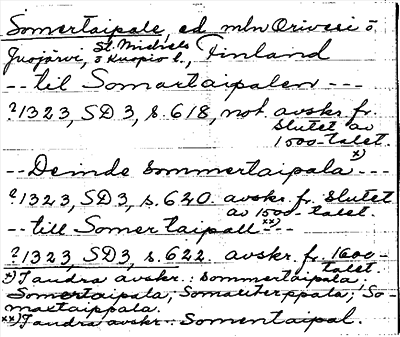 Somertaipale, ed mln Orivesi o
Juojärvi, St. Michels o Kuopio l., Finland
-- til Somartaipalen ---
?1323, SD 3, s. 618, not avskr. fr.
slutet av
1500-talet.
x)
-- Deinde sommertaipala ---
?1323, SD3, s. 620. avskr. fr. slutet
av 1500-talet
xx)
-- till Somer taipall ---
?1323, SD3, s. 622. avskr. fr. 1600-
talet.
x) I andra avskr.: sommertaipala,
Somertaipala, Somariterppala; So-
martaippala.
xx) I andra avskr. Somentaipal.